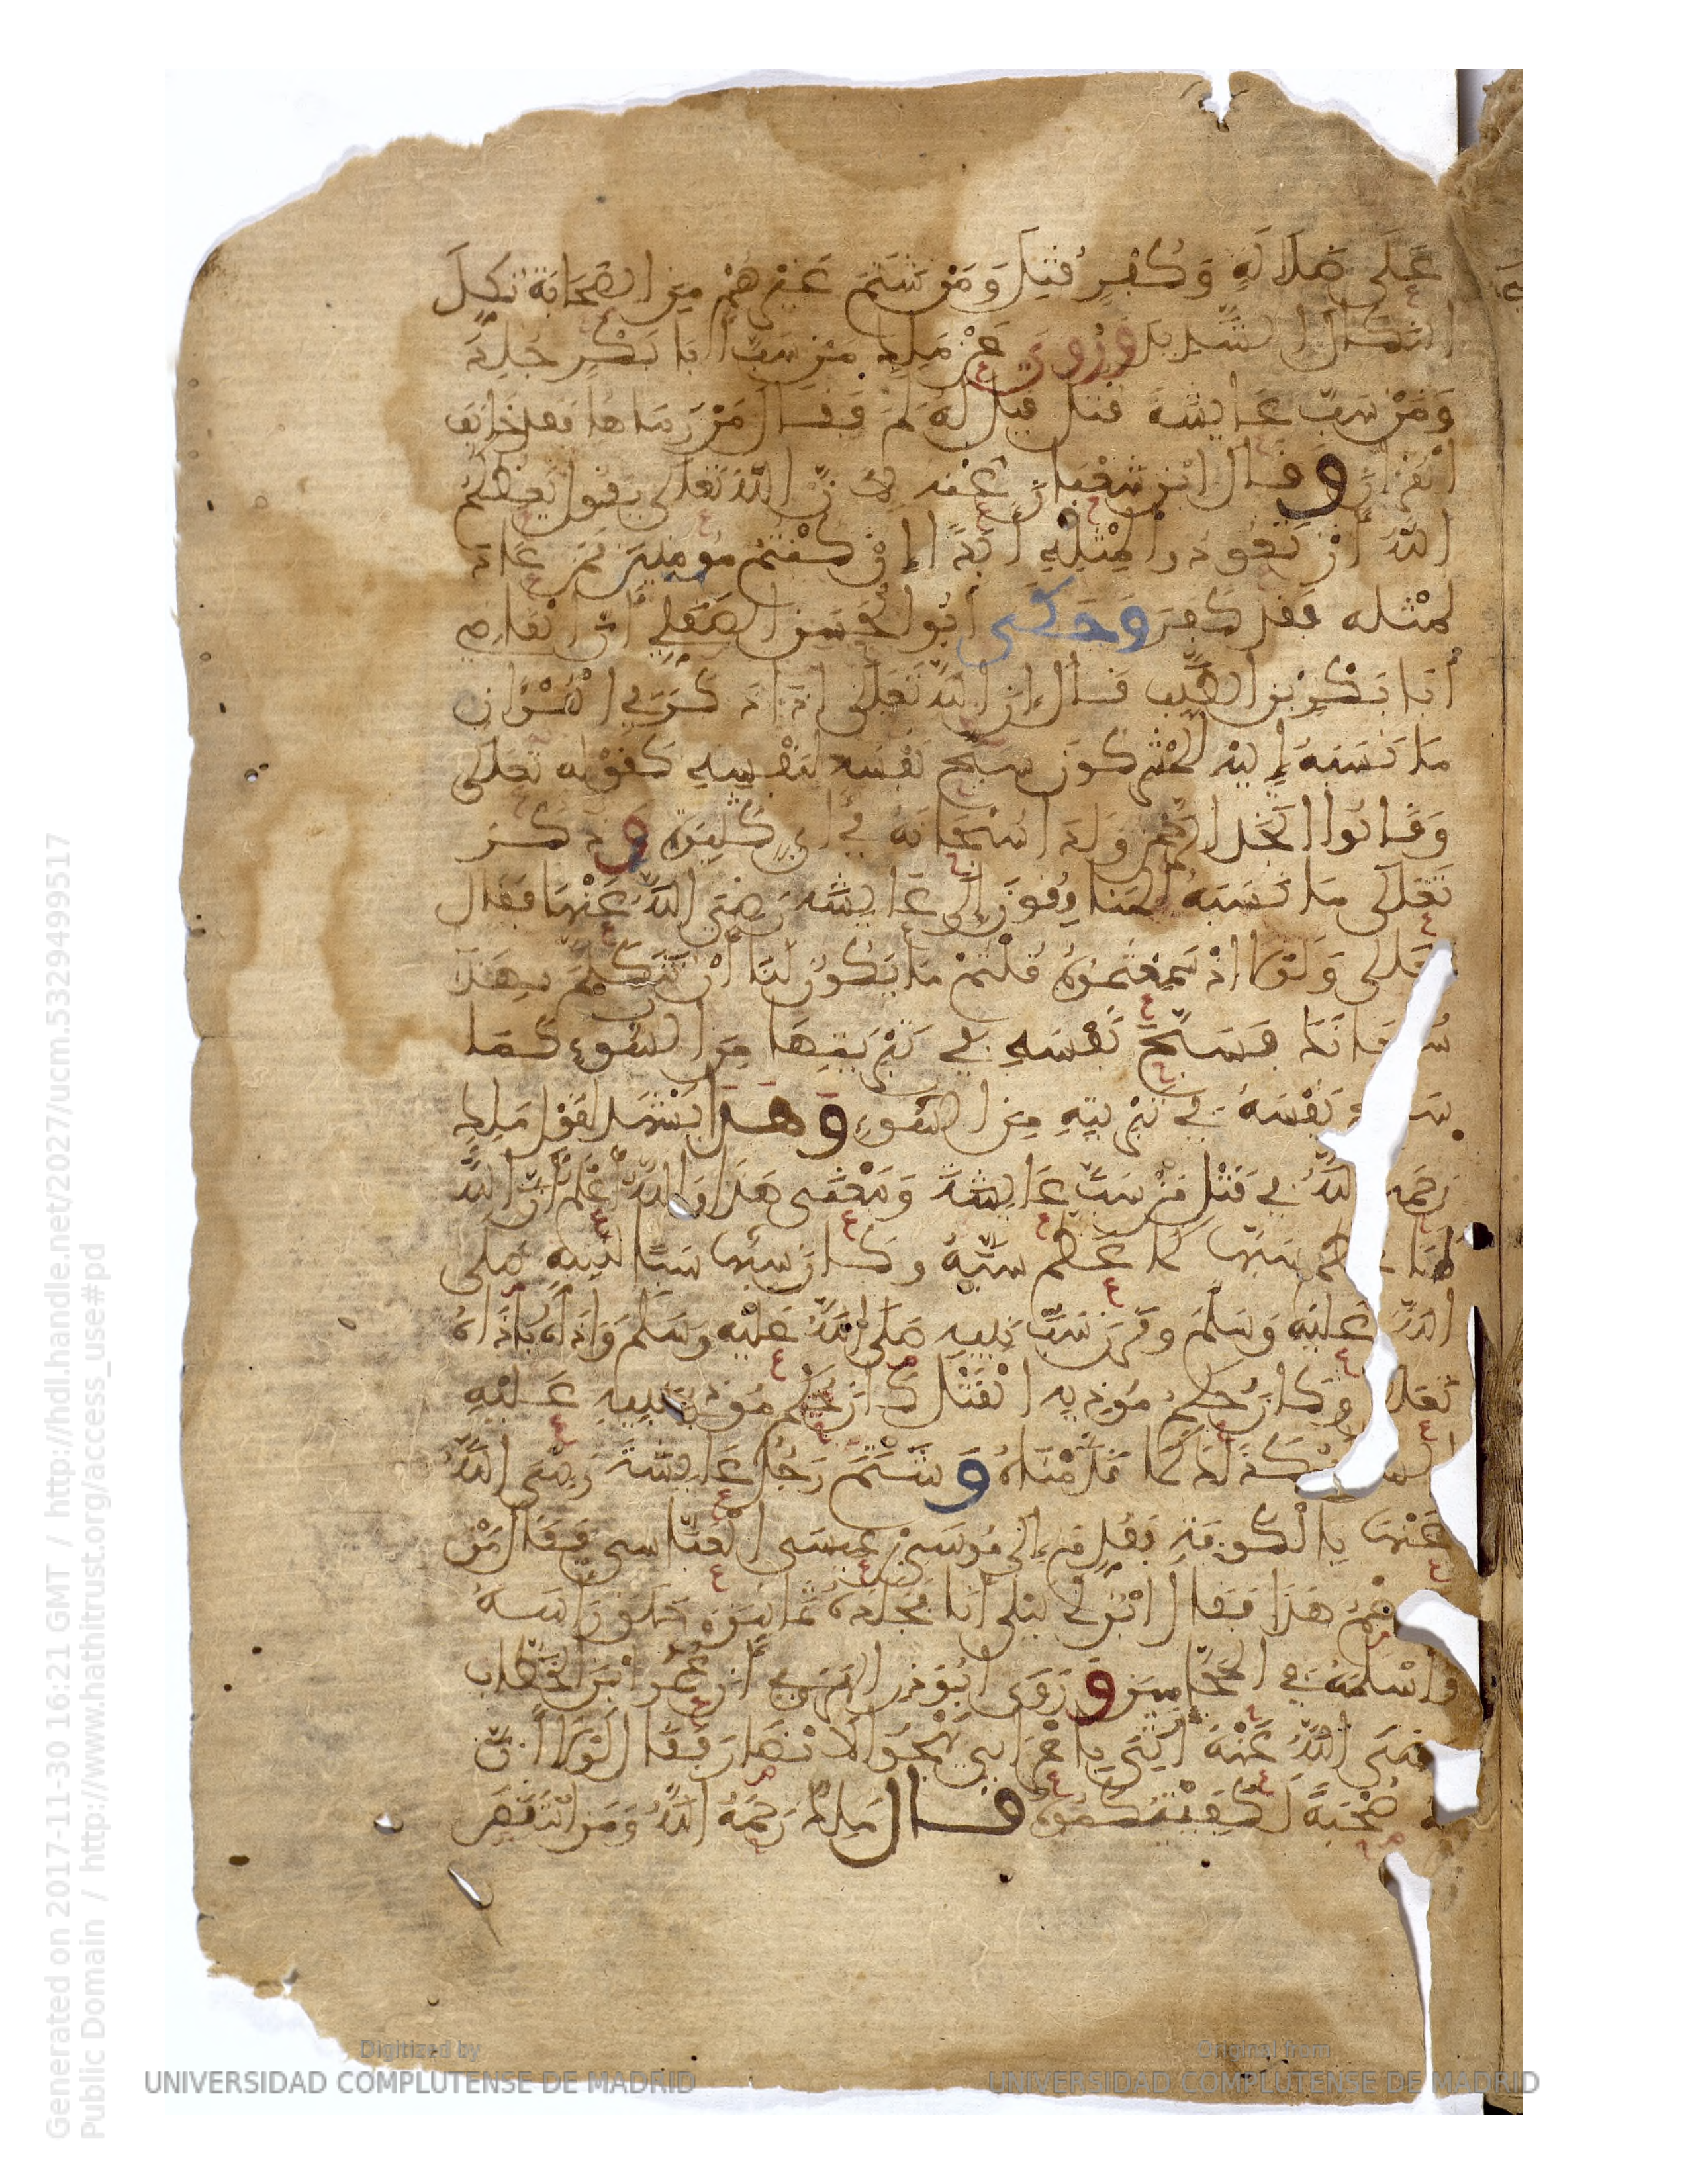 عَلَى ضَلَالَةٍ وَكُفْرٍ قُتِلَ وَمَنْ شَتَمَ غَيْرَهُمْ مِنَ الصَّحَابَةِ نُكِّلَ
النَّكَالَ الشَّدِيدَ وَرُوِيَ عَنْ مَلِكٍ مَنْ سَبَّ أَبَا بَكْرٍ جُلِدَ
وَمَنْ سَبَّ عَايِشَةَ قُتِلَ قِيلَ لَهُ لِمَ فَقَالَ مَنْ رَمَاهَا فَقَدْ خَالَفَ
الْقُرْانَ وَقَالَ ابْنُ شَعْبَانَ عَنْهُ لِأَنَّ اللَّهَ تَعَلَى يَقُولُ يَعِظُكُمُ
اللَّهُ أَنْ تَعُودُوا لِمِثْلِهِ أَبَدًا إِنْ كُنْتُمْ مُومِنِينَ فَمَنْ عَادَ
لِمِثْلِهِ فَقَدْ كَفَرَ وَحَكَى أَبُو الْحَسَنِ الصَّقَلِّي أَنَّ الْقَاضِي
أَبَا بَكْرِ بْنَ الطَّيِّبِ قَالَ إِنَّ اللَّهَ تَعَلَى إِذَا ذَكَرَ فِي الْقُرْانِ
مَا نَسَبَهُ إِلَيْهِ الْمُشْرِكُونَ سَبَّحَ نَفْسَهُ لِنَفْسِهِ كَقَوْلِهِ تَعَلَى
وَقَالُوا اتَّخَذَ الرَّحْمَنُ وَلَدًا سُبْحَانَهُ فِي أيٍ كَثِيرَةٍ وَذَكَرَ
تَعَلَى مَا نَسَبَهُ الْمُنَافِقُونَ إِلَى عَايِشَةَ رَضِيَ اللَّهُ عَنْهَا فَقَالَ
تَعَلَى وَلَوْلَا إِذْ سَمِعْتُمُوهُ قُلْتُمْ مَا يَكُونُ لَنَا أَنْ نَتَكَلَّمَ بِهَذَا
سُبْحَانَكَ فَسَبَّحَ نَفْسَهُ فِي تَبْرِيَتِهَا مِنَ السُّوءِ كَمَا
سَبَّحَ نَفْسَهُ فِي تَبْرِيَتِهِ مِنَ السُّوءِ وَهَذَا يَشْهَدُ لِقَوْلِ مَلِكٍ
رَحِمَهُ اللَّهُ فِي قَتْلِ مَنْ سَبَّ عَايِشَةَ وَمَعْنَى هَذَا وَاللَّهُ أَعْلَمُ أَنَّ اللَّهَ
لَمَّا عَظَّمَ سَبَّهَا كَمَا عَظَّمَ سَبَّهُ وَكَانَ سَبُّهَا سَبًّا لِنَبِيِّهِ صَلَّى
اللَّهُ عَلَيْهِ وَسَلَّمَ وَقَرَنَ سَبَّ نَبِيِّهِ صَلَّى اللَّهُ عَلَيْهِ وَسَلَّمَ وَأَذَاهُ بِأَذَاهُ
تَعَلَى وَكَانَ حُكْمُ مُوذِيهِ الْقَتْلَ كَانَ حُكْمُ مُوذِي نَبِيِّهِ عَلَيْهِ
كَذَلِكَ كَمَا قَدَّمْنَاهُ وَشَتَمَ رَجُلٌ عَايِشَةَ رَضِيَ اللَّهُ
عَنْهَا بِالْكُوفَةِ فَقُدِّمَ إِلَى مُوسَى بْنِ عِيسَى الْعَبَّاسِي فَقَالَ مَنْ
هَذَا فَقَالَ ابْنُ أَبِي لَيْلَى أَنَا فَجَلَدَهُ ثَمَانِينَ وَحَلَقَ رَأْسَهُ
وَأَسْلَمَهُ فِي الْحَجَّامِينَ وَرُوِيَ عُمَرَ ابْنَ الْخَطَّابِ
رَضِيَ اللَّهُ عَنْهُ أُتِيَ بِأَعْرَابِيٍّ يَهْجُو الْأَنْصَارَ فَقَالَ لَوْلَا أَنَّ
لَهُ صُحْبَةً لَكَفَيْتُكُمُوهُ قَالَ مَلِكٌ رَحِمَهُ اللَّهُ وَمَنِ انْتَقَصَ
Digitized by
UNIVERSIDAD COMPLUTENSE DE MADRID
Original from
UNIVERSIDAD COMPLUTENSE DE MADRID
Generated on 2017-11-30 16:21 GMT / http://hdl.handle.net/2027/ucm.5329499517
Public Domain / http://www.hathitrust.org/access_use#pd